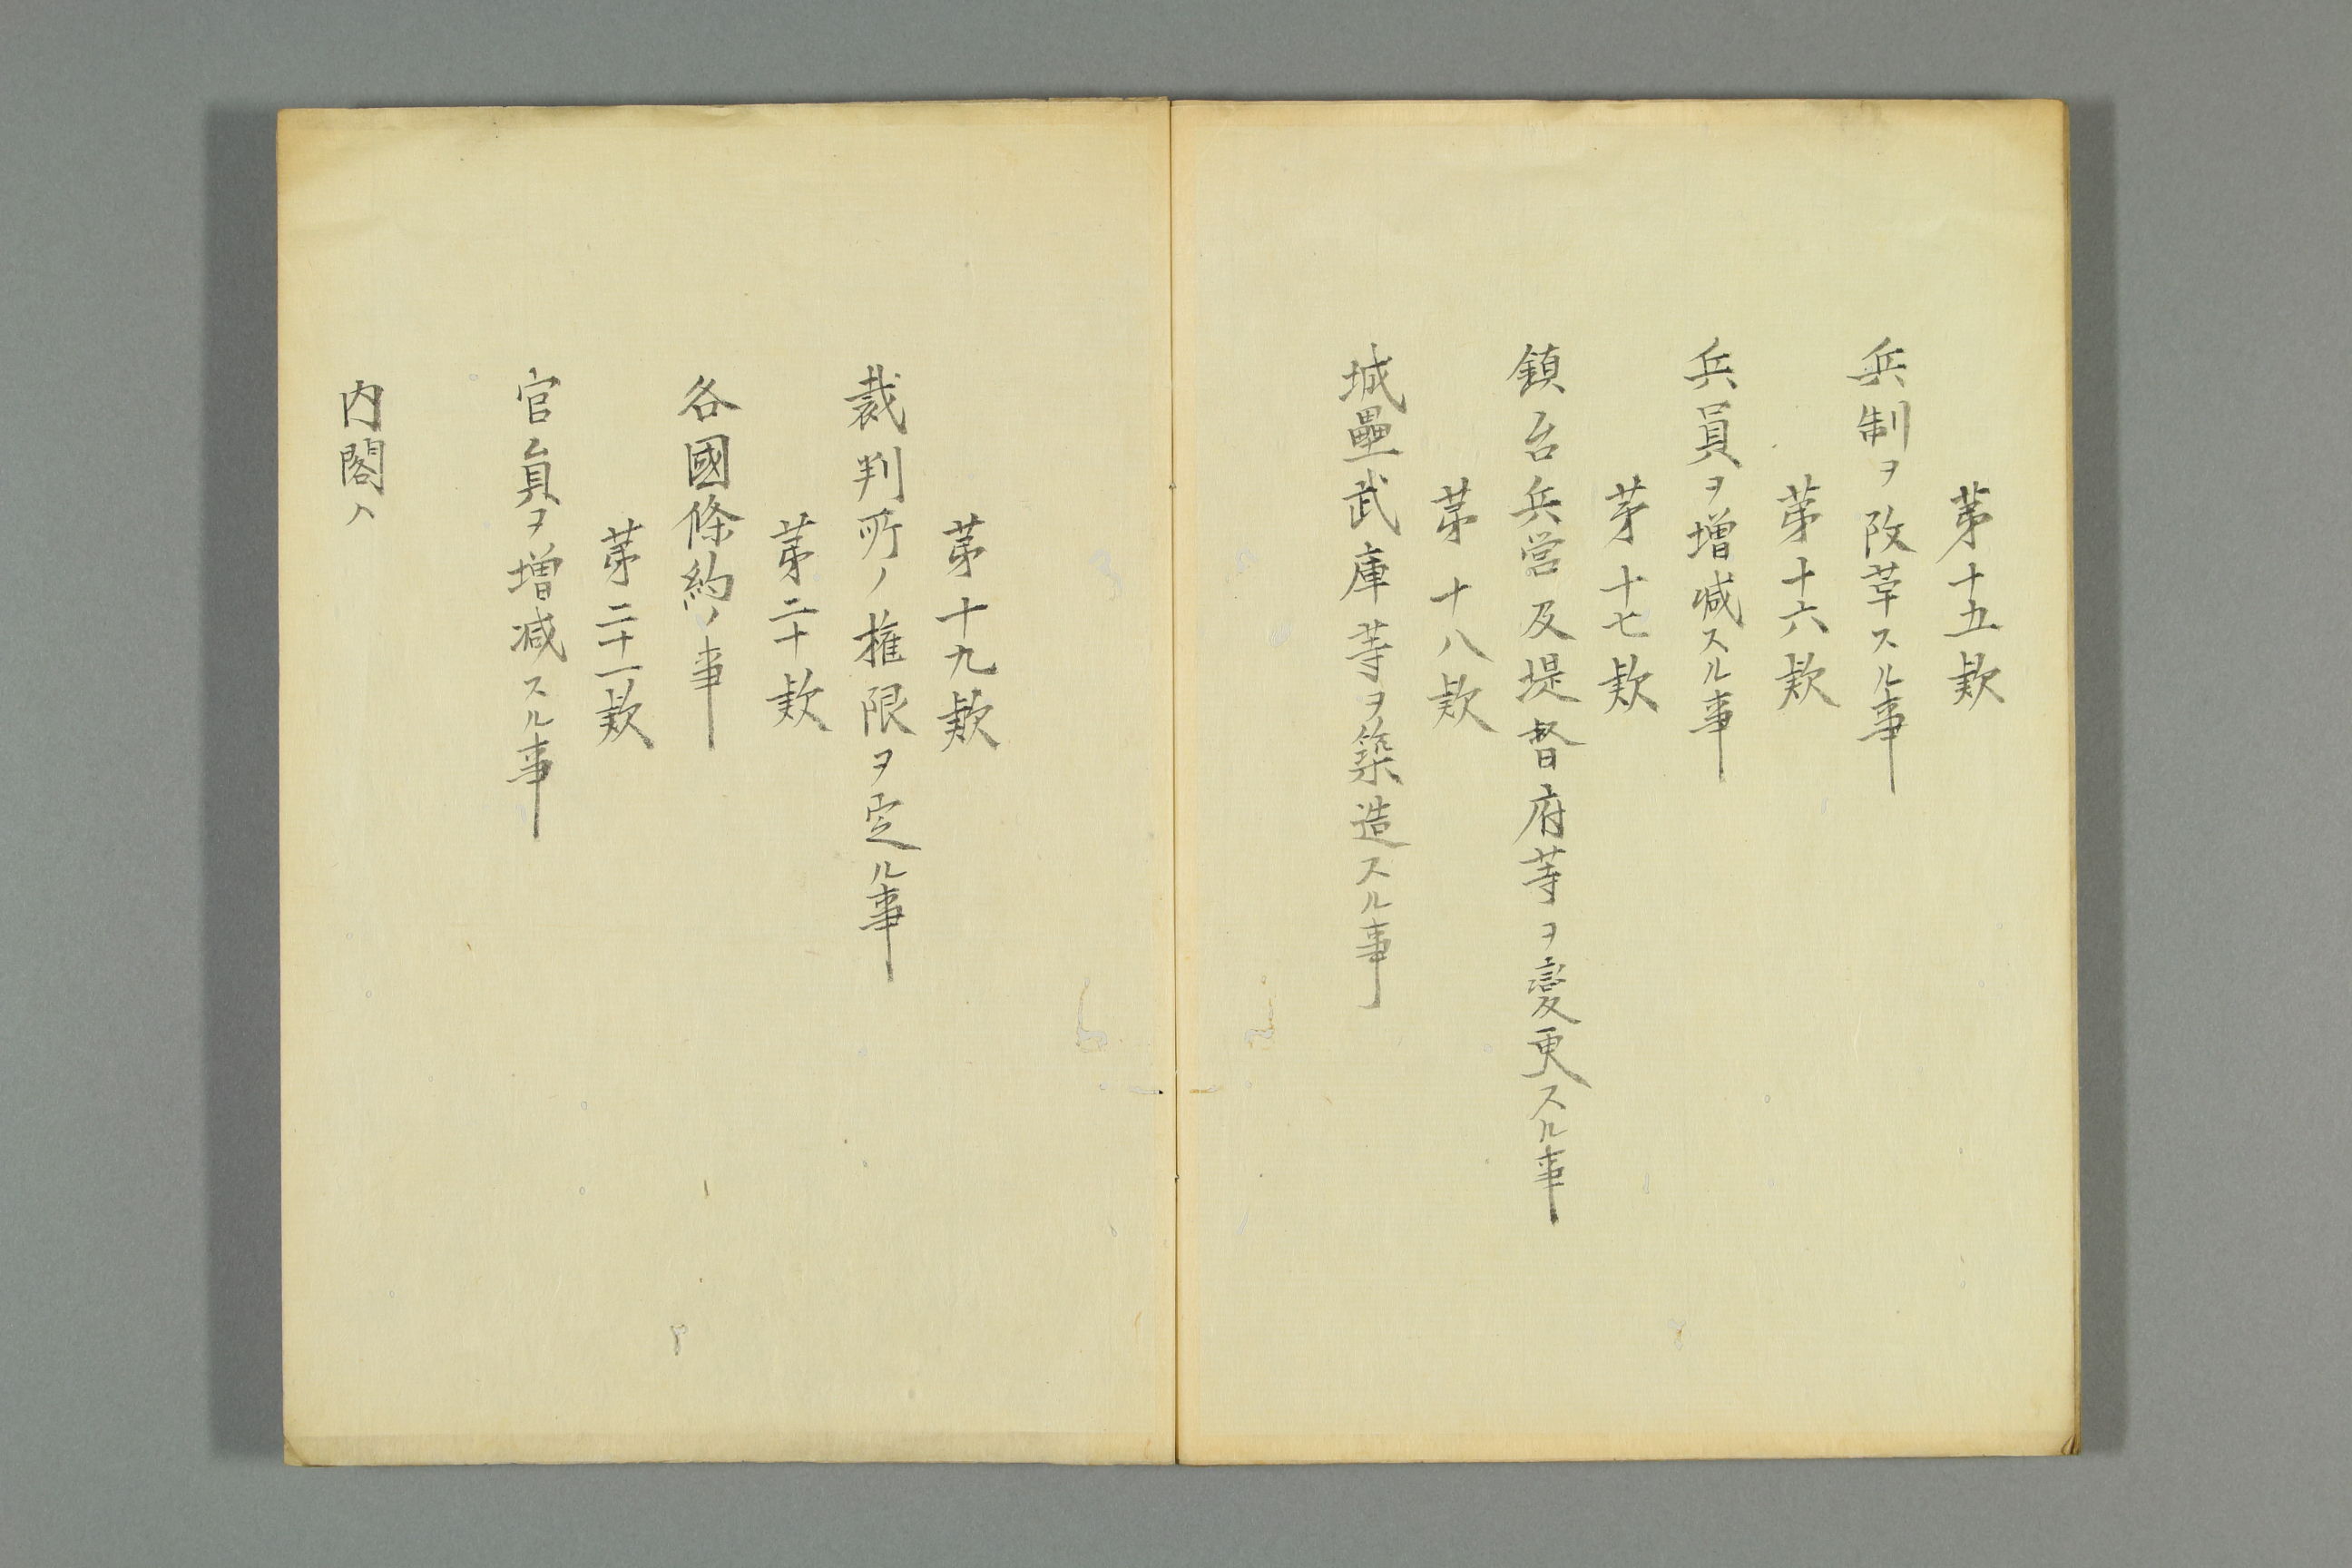 第十五款
兵制ヲ改革スル事
第十六款
兵員ヲ増减スル事
第十七款
鎮台兵営及堤督府等ヲ變更スル事
第十八款
城壘武庫等ヲ築造スル事
第十九款
裁判所ノ権限ヲ定ル事
第二十款
各國條約ノ事
第二十一款
官員ヲ増减スル事
内閣ハ